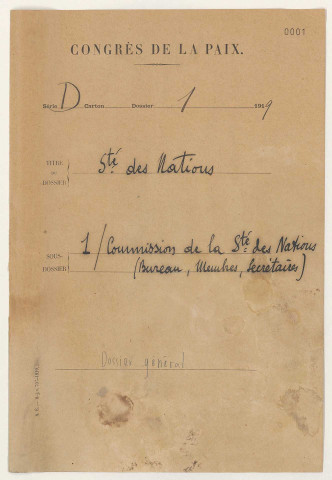 0001
CONGRÈS DE LA PAIX.
Série D Carton Dossier 1 1919
TITRE
DU
DOSSIER
Sté des Nations
SOUS-
DOSSIER
1/ Commission de la Sté des Nations
(Bureau, Membres, Secrétaires)
Dossier général